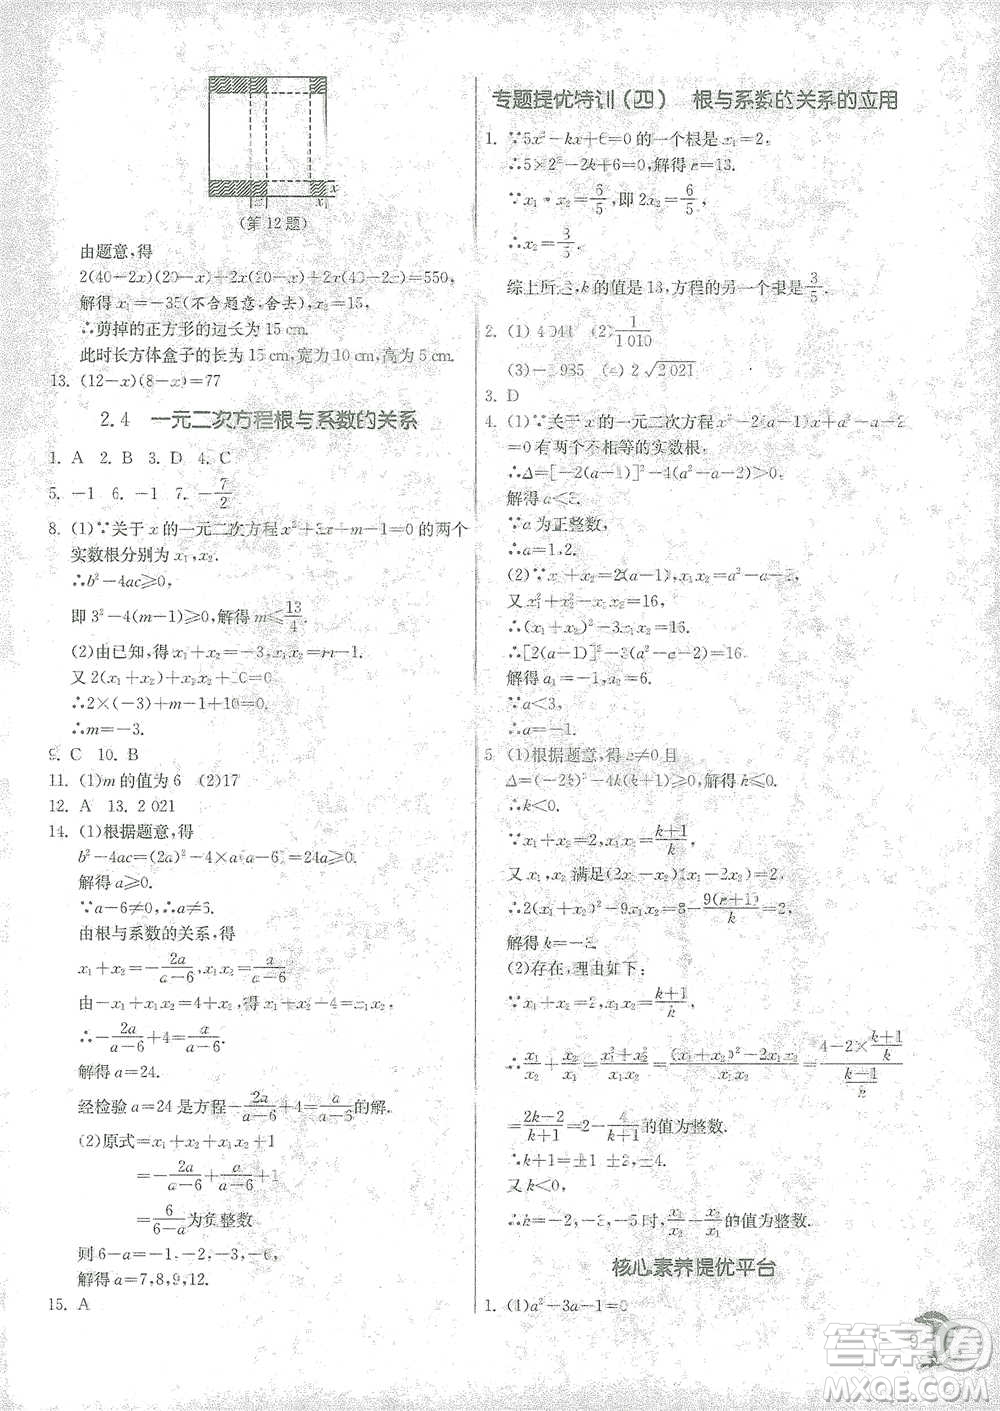 x
x₁
(第12题)
由题意,得
2(40-2x)(20-x)+2x(20-x)+2x(40-2x)=550,
解得x₁=-35(不合题意,舍去),x₂=15,
∴剪掉的正方形的边长为15 cm.
此时长方体盒子的长为15 cm,宽为10 cm,高为5 cm.
13. (12-x)(8-x)=77
2.4 一元二次方程根与系数的关系
1. A 2. B 3. D 4. C
5. -1 6. -1 7. -7/2
8. (1)∵关于x的一元二次方程x²+3x+m-1=0的两个
实数根分别为x₁,x₂.
∴b²-4ac≥0,
即3²-4(m-1)≥0,解得m≤13/4.
(2)由已知,得x₁+x₂=-3,x₁x₂=m-1.
又2(x₁+x₂)+x₁x₂+10=0.
∴2×(-3)+m-1+10=0.
∴m=-3.
9. C 10. B
11. (1)m的值为6 (2)17
12. A 13. 2 021
14. (1)根据题意,得
b²-4ac=(2a)²-4×a(a-6)=24a≥0.
解得a≥0.
∵a-6≠0,∴a≠6.
由根与系数的关系,得
x₁+x₂=-2a/(a-6),x₁x₂=a/(a-6).
由-x₁+x₁x₂=4+x₂,得x₁+x₂+4=x₁x₂.
∴-2a/(a-6)+4=a/(a-6).
解得a=24.
经检验a=24是方程-2a/(a-6)+4=a/(a-6)的解.
(2)原式=x₁+x₂+x₁x₂+1
=-2a/(a-6)+a/(a-6)+1
=6/(6-a)为负整数
则6-a为-1,-2,-3,-6.
解得a=7,8,9,12.
15. A
专题提优特训(四) 根与系数的关系的应用
1. ∵5x²-kx+6=0的一个根是x₁=2,
∴5×2²-2k+6=0,解得k=13.
∵x₁•x₂=6/5,即2x₂=6/5,
∴x₂=3/5.
综上所述,k的值是13,方程的另一个根是3/5.
2. (1)4 041 (2)1/1 010
(3)- 985 (4)2√2 021
3. D
4. (1)∵关于x的一元二次方程x²-2(a-1)x+a²-a-2
=0有两个不相等的实数根.
∴Δ=[-2(a-1)]²-4(a²-a-2)>0,
解得a<3.
∵a为正整数,
∴a=1,2.
(2)∵x₁+x₂=2(a-1),x₁x₂=a²-a-2,
又x₁²+x₂²-x₁x₂=16,
∴(x₁+x₂)²-3x₁x₂=16.
∴[2(a-1)]²-3(a²-a-2)=16.
解得a₁=-1,a₂=6.
∵a<3,
∴a=-1.
5. (1)根据题意,得k≠0且
Δ=(-2k)²-4k(k+1)≥0,
∴k<0.
∵x₁+x₂=2,x₁x₂=(k+1)/k,
又x₁,x₂满足(2x₁-x₂)(x₁-2x₂)=2,
∴2(x₁+x₂)²-9x₁x₂=8-9(k+1)/k=2.
解得k=
(2)存在,理由如下:
∵x₁+x₂=2,x₁x₂=(k+1)/k,
∴x₁/x₂+x₂/x₁=(x₁²+x₂²)/x₁x₂=((x₁+x₂)²-2x₁x₂)/x₁x₂=(4-2×(k+1)/k)/((k+1)/k)
=(2k-2)/(k+1)=2-4/(k+1)的值为整数.
∴k+1=±1,±2,±4.
又k<0,
∴k=-2,-3,-5时,x₁/x₂+x₂/x₁的值为整数.
核心素养提优平台
1. (1)a²-3a-1=0
9
答案圈
MXQE.COM